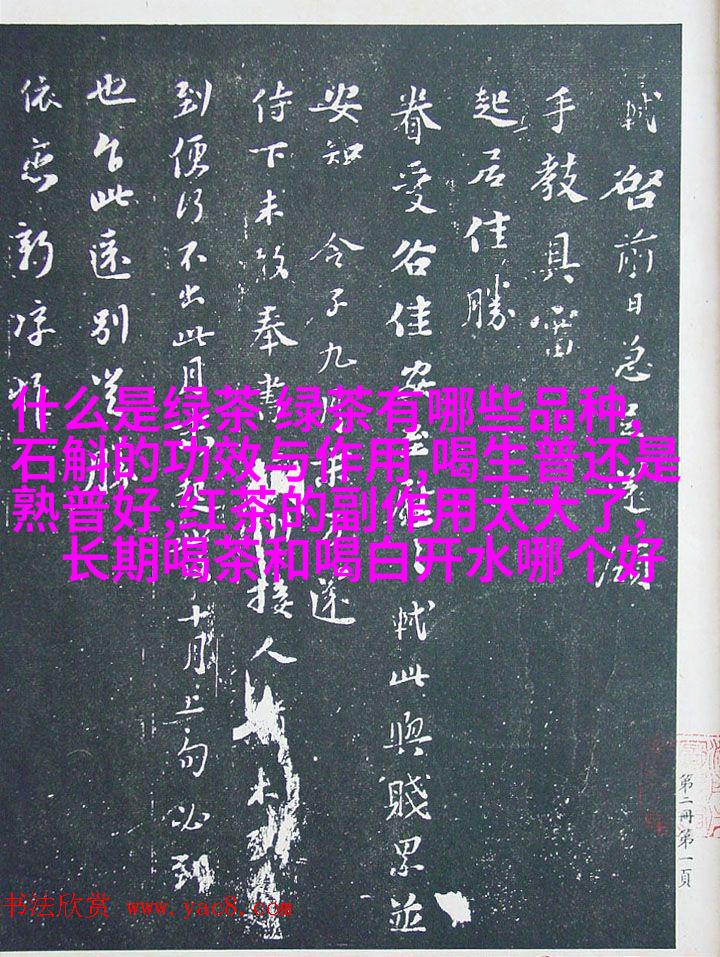 軾啓前日急
手教具審
起居佳勝
眷愛各佳安 軾此與賤累並
安知 令子九
侍下未敢奉書 接人
到便行不出此月 十月上旬必到
也乍此遠別
依戀新涼
什么是绿茶 绿茶有哪些品种,
石斛的功效与作用,喝生普还是
熟普好,红茶的副作用太大了,
长期喝茶和喝白开水哪个好
第二冊第一頁
书法欣赏 www.yac8.com